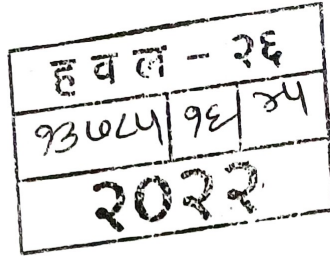 ह व ल - २६
१३७८५ १६ २५
२०२२